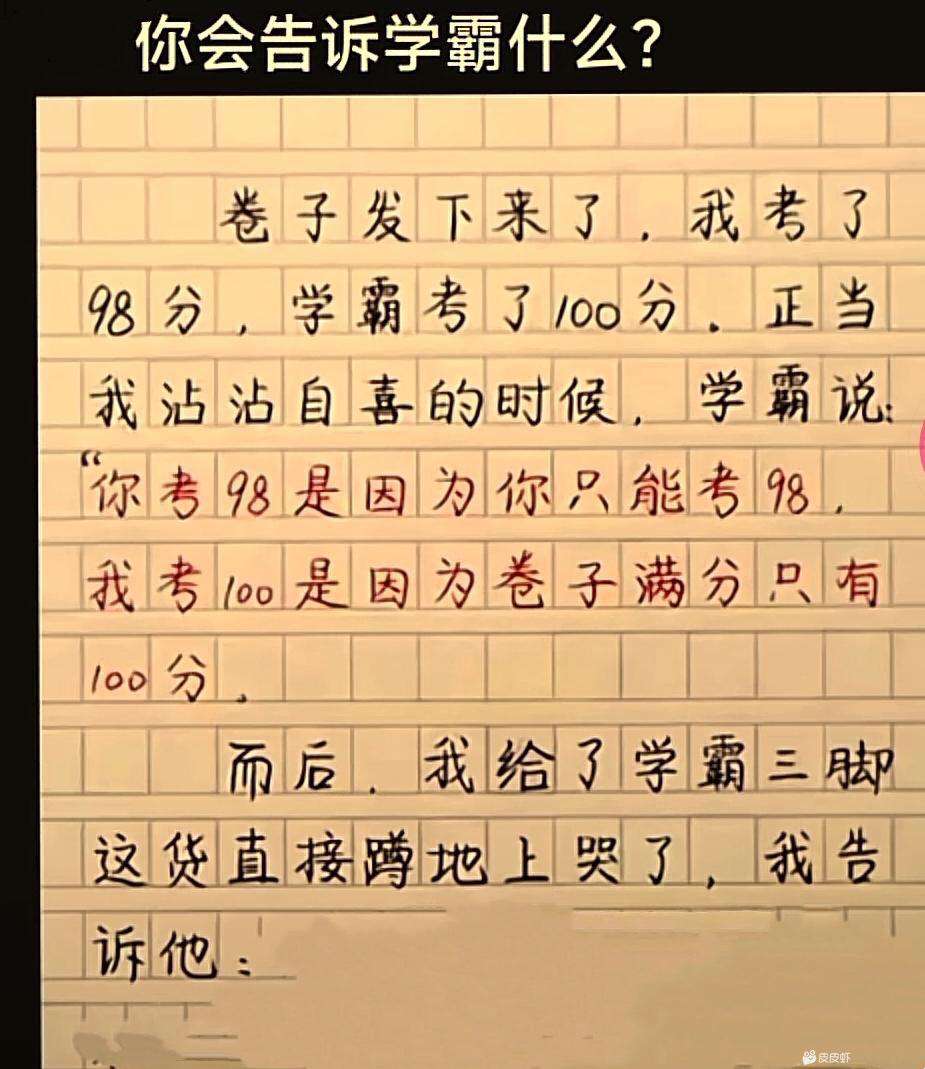 你会告诉学霸什么？
卷子发下来了，我考了
98分，学霸考了100分。正当
我沾沾自喜的时候，学霸说：
“你考98是因为你只能考98，
我考100是因为卷子满分只有
100分。
而后，我给了学霸三脚
这货直接蹲地上哭了，我告
诉他：
皮皮虾